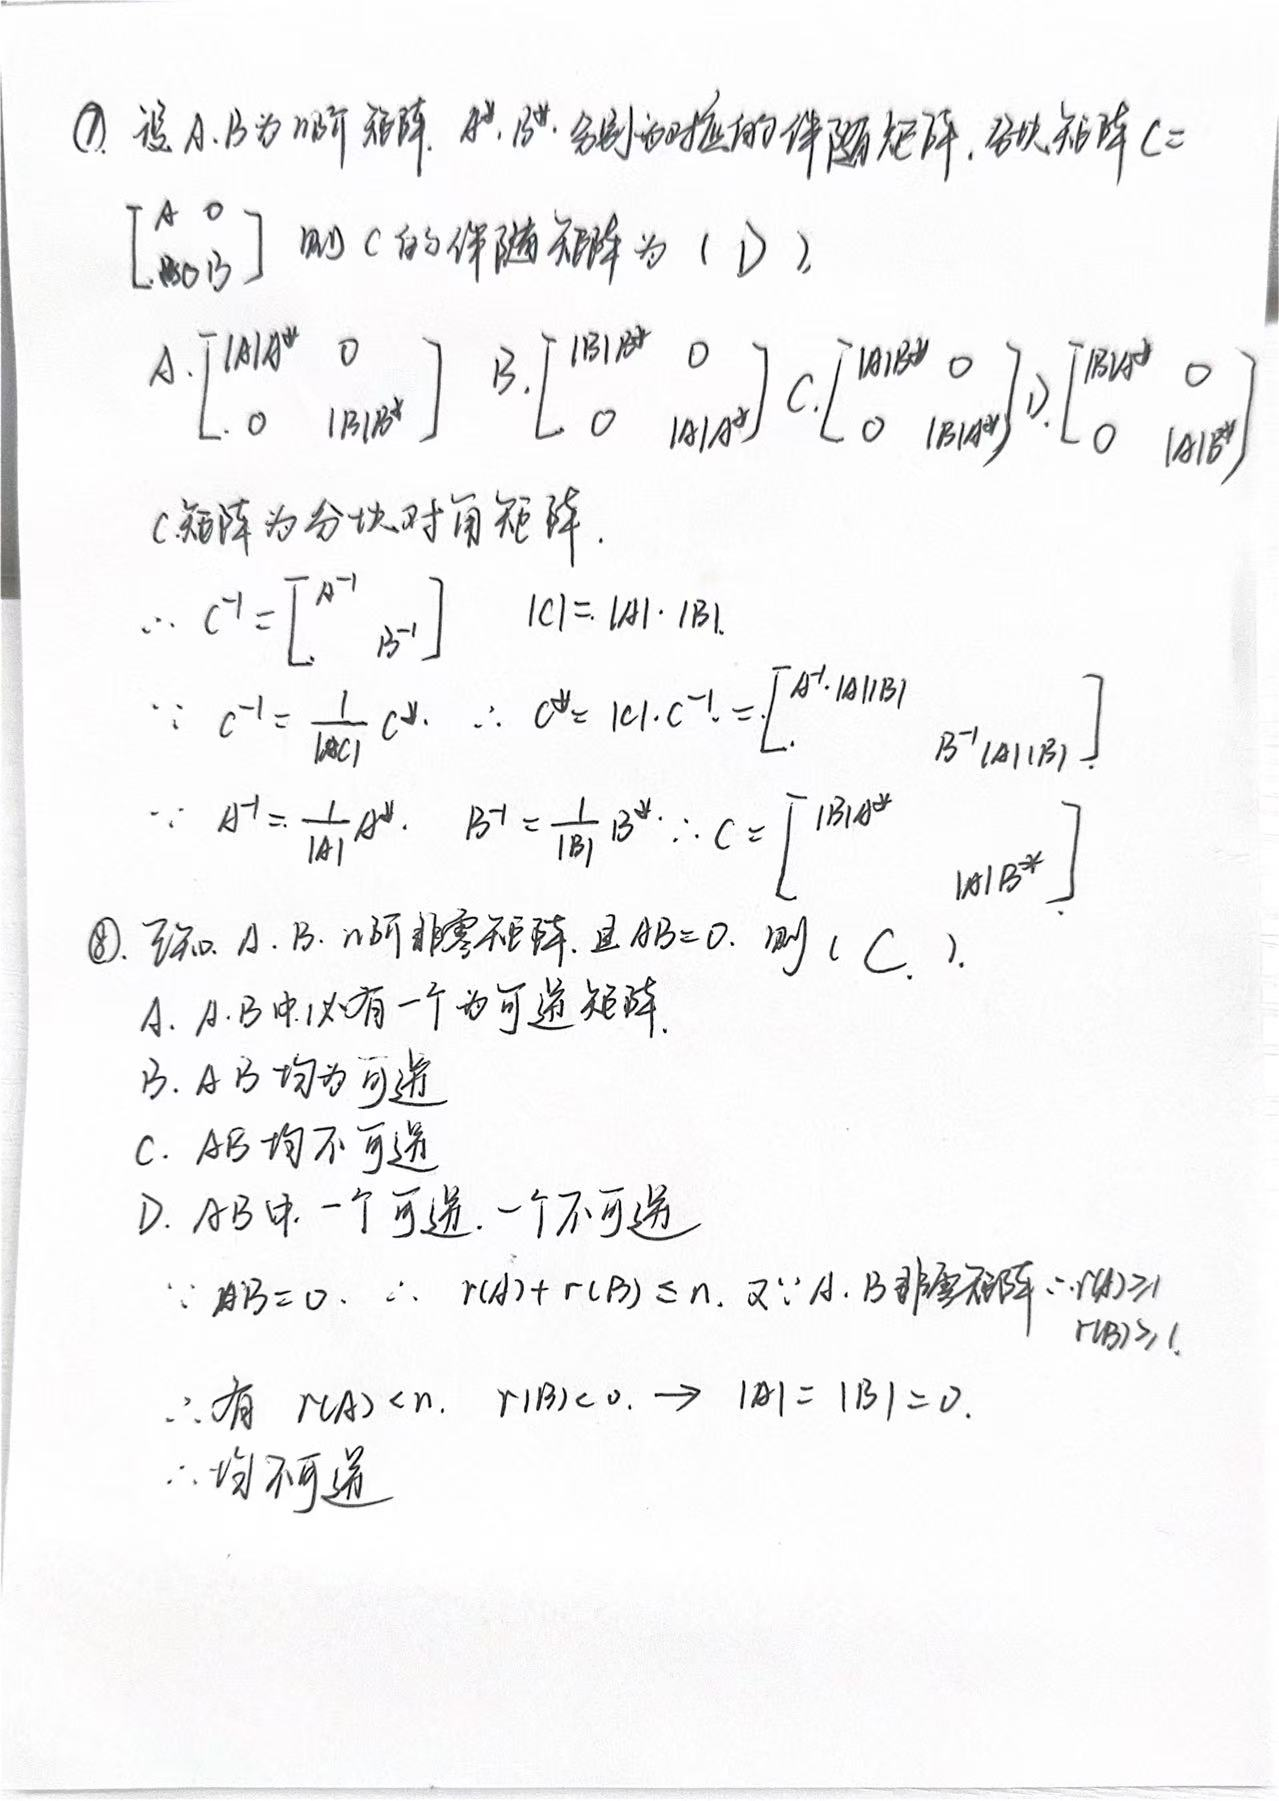 ⑦. 设A.B为n阶矩阵. A*.B*.分别为对应的伴随矩阵.分块矩阵C=
[A 0
0 B] 则C的伴随矩阵为(D).
A.[|A|A* 0
0 |B|B*] B.[|B|B* 0
0 |A|A*] C.[|A|B* 0
0 |B|A*] D.[|B|A* 0
0 |A|B*]
C矩阵为分块对角矩阵.
∴ C⁻¹=[A⁻¹
B⁻¹] |C|=|A|·|B|.
∵ C⁻¹= 1/|C| C*. ∴ C*=|C|·C⁻¹.=[A⁻¹·|A||B|
B⁻¹|A||B|].
∵ A⁻¹= 1/|A| A*. B⁻¹= 1/|B| B*.∴ C=[|B|A*
|A|B*].
⑧. 已知. A.B.n阶非零矩阵.且AB=0. 则(C.).
A. A.B中必有一个为可逆矩阵.
B. AB均为可逆
C. AB均不可逆
D. AB中.一个可逆.一个不可逆
∵ AB=0. ∴ r(A)+r(B)≤n. 又∵A.B非零矩阵∴r(A)≥1
r(B)≥1.
∴有 r(A)<n. r(B)<0. → |A|=|B|=0.
∴均不可逆